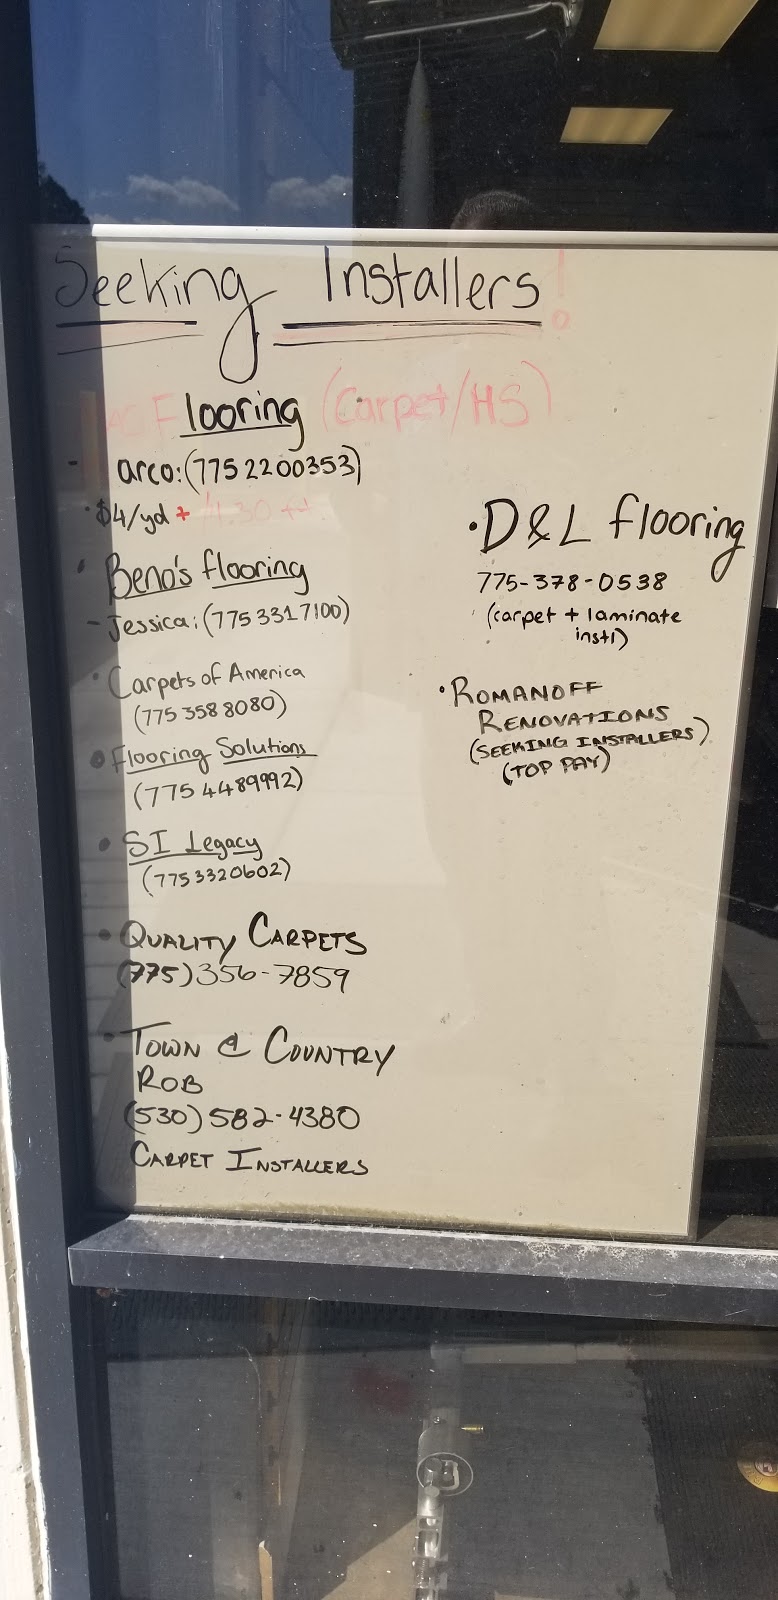 Seeking Installers!
Flooring (Carpet/HS)
- arco: (775 2200353)
· $4/yd +
· Beno's flooring
- Jessica: (775 331 7100)
· Carpets of America
(775 358 8080)
· Flooring Solutions
(775 4489992)
· SI Legacy
(775 3320602)
· QUALITY CARPETS
(775) 356-7859
· TOWN & COUNTRY
ROB
(530) 582-4380
CARPET INSTALLERS
· D&L flooring
775-378-0538
(carpet + laminate
instl)
· ROMANOFF
RENOVATIONS
(SEEKING INSTALLERS)
(TOP PAY)